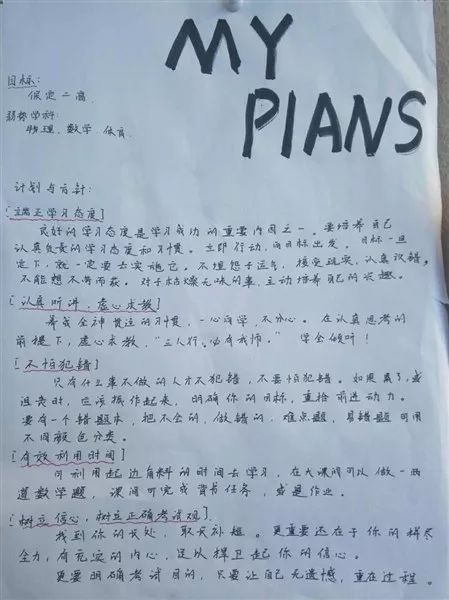 MY
PIANS
目标:
保定二高.
弱称学科:
物理, 数学, 体育.
计划与方针:
[端正学习态度]
良好的学习态度是学习成功的重要内因之一. 要培养自己
认真负责的学习态度和习惯。立即行动,向目标出发。目标一旦
定下,就一定要去实施它。不埋怨于运气,接受现实,认真改错。
不能想不劳而获。对于枯燥无味的事,主动培养自己的兴趣。
[认真听讲, 虚心求教]
养成全神贯注的习惯,一心向学,不分心。在认真思考的
前提下,虚心求教,“三人行,必有我师。” 学会倾听!
[不怕犯错]
只有什么事不做的人才不犯错,不要怕犯错。如果累了,或
沮丧时,应该振作起来,明确你的目标,重拾前进动力。
要有一个错题本,把不会的,做错的,难点题,易错题可用
不同颜色分类。
[有效利用时间]
可利用起边角料的时间去学习,在大课间可以做一两
道数学题,课间可完成背书任务,或是作业。
[树立信心,树立正确考试观]
找到你的长处,取长补短。更重要还在于你的拼尽
全力,有充实的内心,足以捍卫起你的信心。
更要明确考试目的,只要让自己无遗憾,重在过程。